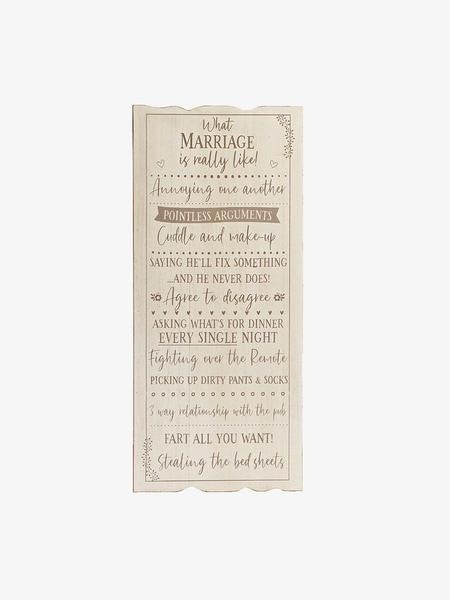 What
MARRIAGE
is really like!
Annoying one another
POINTLESS ARGUMENTS
Cuddle and make-up
SAYING HE'LL FIX SOMETHING
...AND HE NEVER DOES!
Agree to disagree
ASKING WHAT'S FOR DINNER
EVERY SINGLE NIGHT
Fighting over the Remote
PICKING UP DIRTY PANTS & SOCKS
3 way relationship with the pub
FART ALL YOU WANT!
Stealing the bed sheets